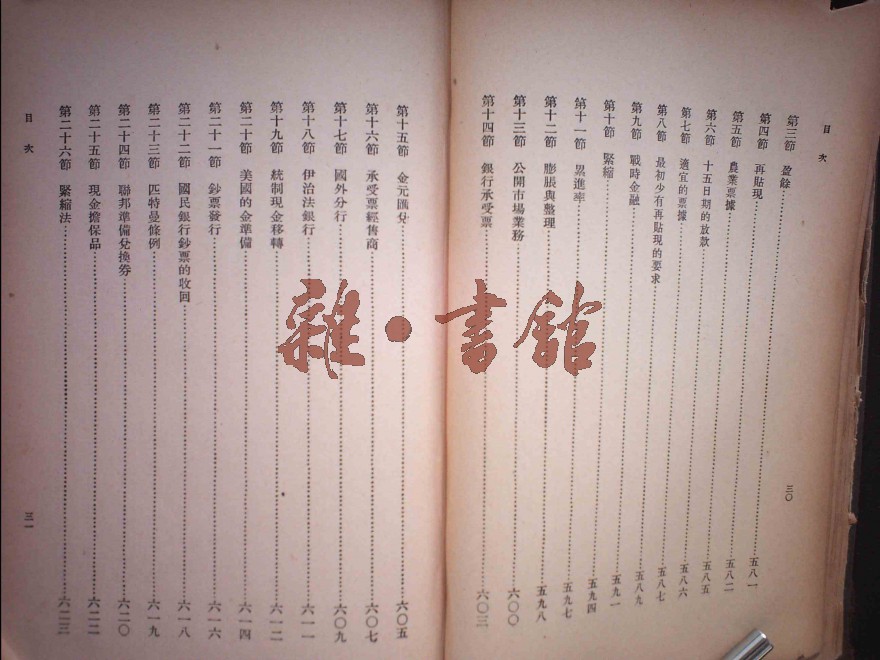 目次
三〇
第三節 盈餘……五八一
第四節 再貼現……五八二
第五節 農業票據……五八五
第六節 十五日期的放款……五八六
第七節 適宜的票據……五八七
第八節 最初少有再貼現的要求……五八九
第九節 戰時金融……五九一
第十節 緊縮……五九四
第十一節 累進率……五九七
第十二節 膨脹與整理……五九八
第十三節 公開市場業務……六〇〇
第十四節 銀行承受票……六〇三
第十五節 金元匯兌……六〇五
第十六節 承受票經售商……六〇七
第十七節 國外分行……六〇九
第十八節 伊治法銀行……六一一
第十九節 統制現金移轉……六一二
第二十節 美國的金準備……六一四
第二十一節 鈔票發行……六一六
第二十二節 國民銀行鈔票的收回……六一八
第二十三節 匹特曼條例……六一九
第二十四節 聯邦準備兌換券……六二〇
第二十五節 現金擔保品……六二二
第二十六節 緊縮法……六二三
目次
三一
雜·書館